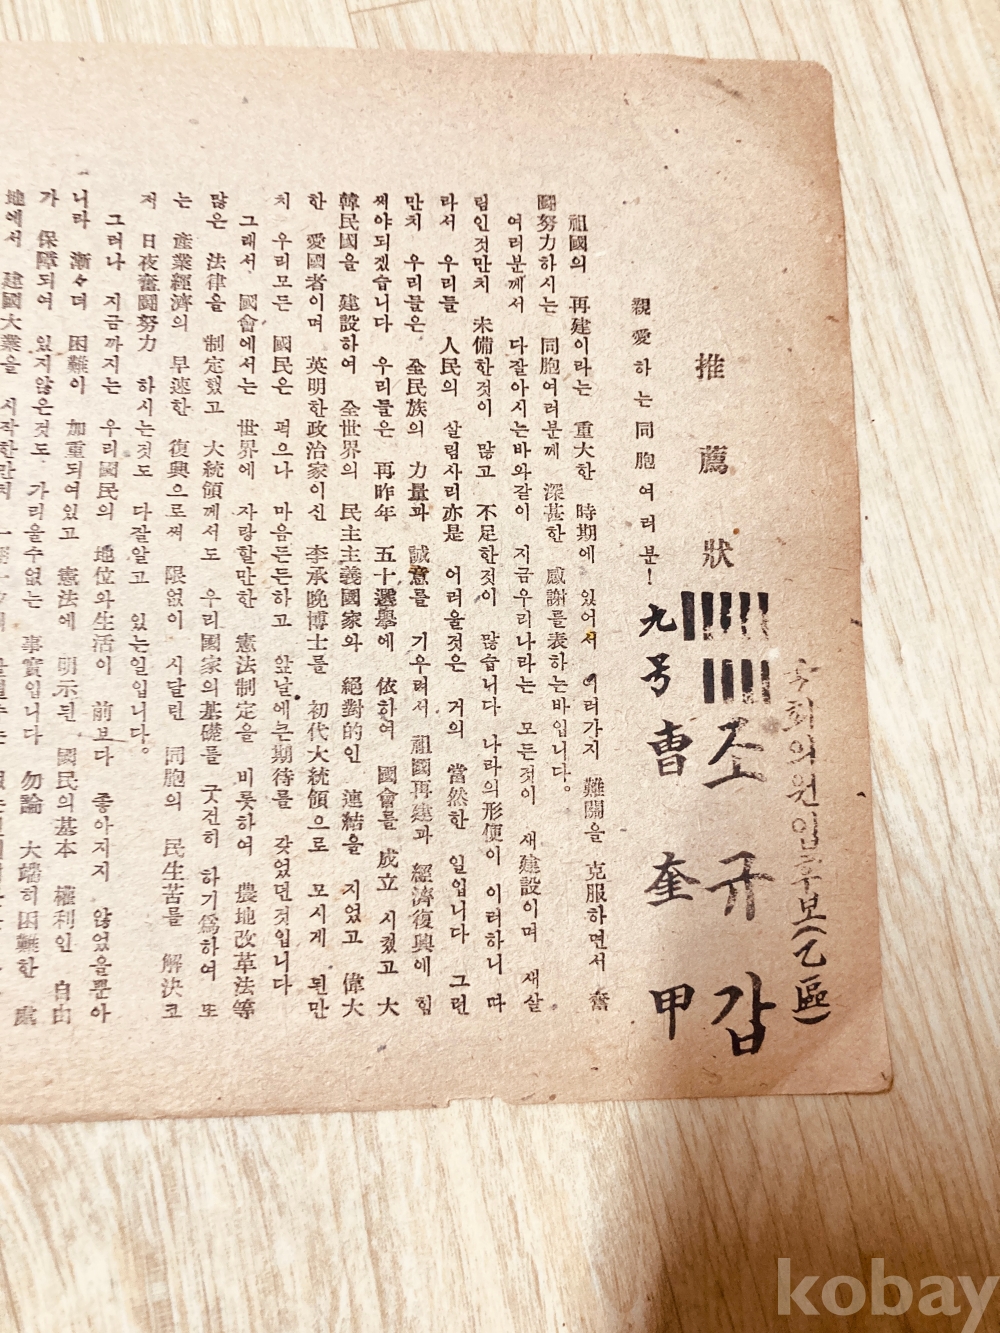 국회의원입후보(乙區)
조규갑
九号 曹奎甲
推薦狀
親愛하는同胞여러분!
祖國의 再建이라는 重大한 時期에 있어서 여러가지 難關을 克服하면서 奮
鬪努力하시는 同胞여러분께 深甚한 感謝를表하는바입니다。
여러분께서 다잘아시는바와같이 지금우리나라는 모든것이 새建設이며 새살
림인것만치 未備한것이 많고 不足한것이 많습니다 나라의形便이 이러하니 따
라서 우리들 人民의 살림사리亦是 어려울것은 거의 當然한 일입니다 그런
만치 우리들은 全民族의 力量과 誠意를 기우려서 祖國再建과 經濟復興에 힘
써야되겠습니다 우리들은 再昨年 五十選擧에 依하여 國會를 成立 시켰고 大
韓民國을 建設하여 全世界의 民主主義國家와 絕對的인 連結을 지었고 偉大
한 愛國者이며 英明한政治家이신 李承晚博士를 初代大統領으로 모시게 된만
치 우리모든 國民은 퍽으나 마음든든하고 앞날에큰期待를 갖었던것입니다
그래서 國會에서는 世界에 자랑할만한 憲法制定을 비롯하여 農地改革法等
많은 法律을 制定했고 大統領께서도 우리國家의基礎를 굿건히 하기爲하여 또
는 産業經濟의 早速한 復興으로써 限없이 시달린 同胞의 民生苦를 解決코
저 日夜奮鬪努力 하시는것도 다잘알고 있는일입니다。
그러나 지금까지는 우리國民의 地位와生活이 前보다 좋아지지 않었을뿐아
니라 漸々더 困難이 加重되여있고 憲法에 明示된 國民의基本 權利인 自由
가 保障되여 있지않은것도 가리울수없는 事實입니다 勿論 大端히困難한 處
地에서 建國大業을 시작한만치
kobay